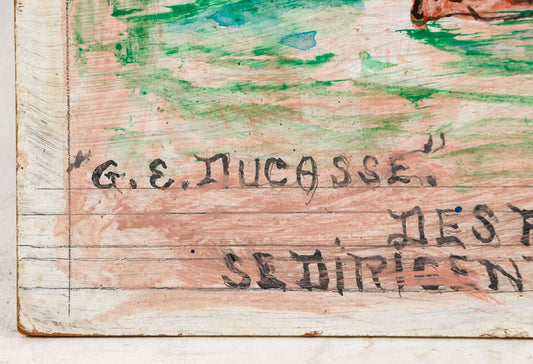 "G.E. DUCASSE."
DES
SE DIRIGENT